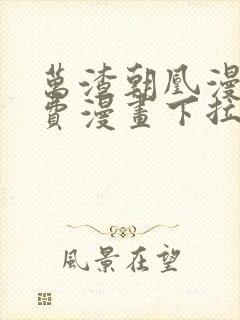 萬渣朝凰漫
費漫畫下拉
風景在望